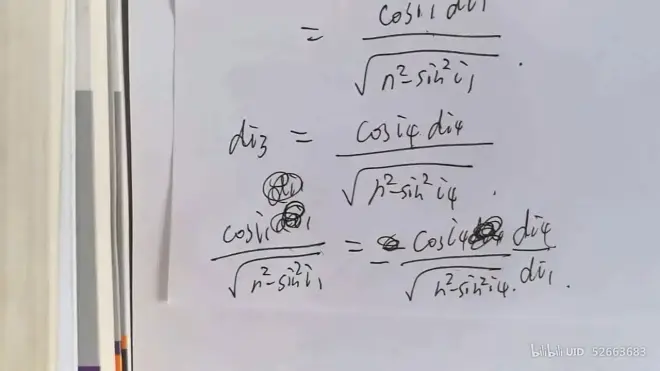 = cosi₁ di₁ / √(n²-sin²i₁) .
di₃ = cosi₄ di₄ / √(n²-sin²i₄) .
cosi₁ / √(n²-sin²i₁) = - cosi₄ / √(n²-sin²i₄) · di₄ / di₁ .
bilibili UID 52663683